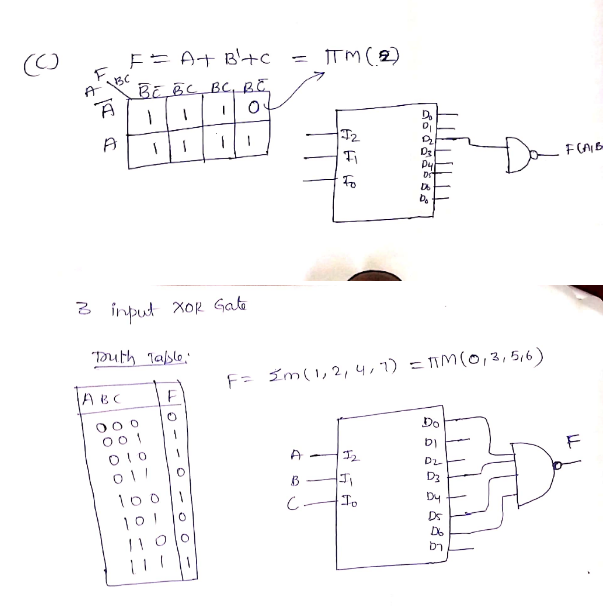 (C) F = A + B' + C = ΠM(2)
F
A BC
B̅C̅ B̅C BC BC̅
A̅ 1 1 1 0
A 1 1 1 1
I2
I1
I0
D0
D1
D2
D3
D4
D5
D6
D6
F(A,B
3 input XOR Gate
Truth Table:
F = Σm(1,2,4,7) = ΠM(0,3,5,6)
A B C F
0 0 0 0
0 0 1 1
0 1 0 1
0 1 1 0
1 0 0 1
1 0 1 0
1 1 0 0
1 1 1 1
A I2
B I1
C I0
D0
D1
D2
D3
D4
D5
D6
D7
F